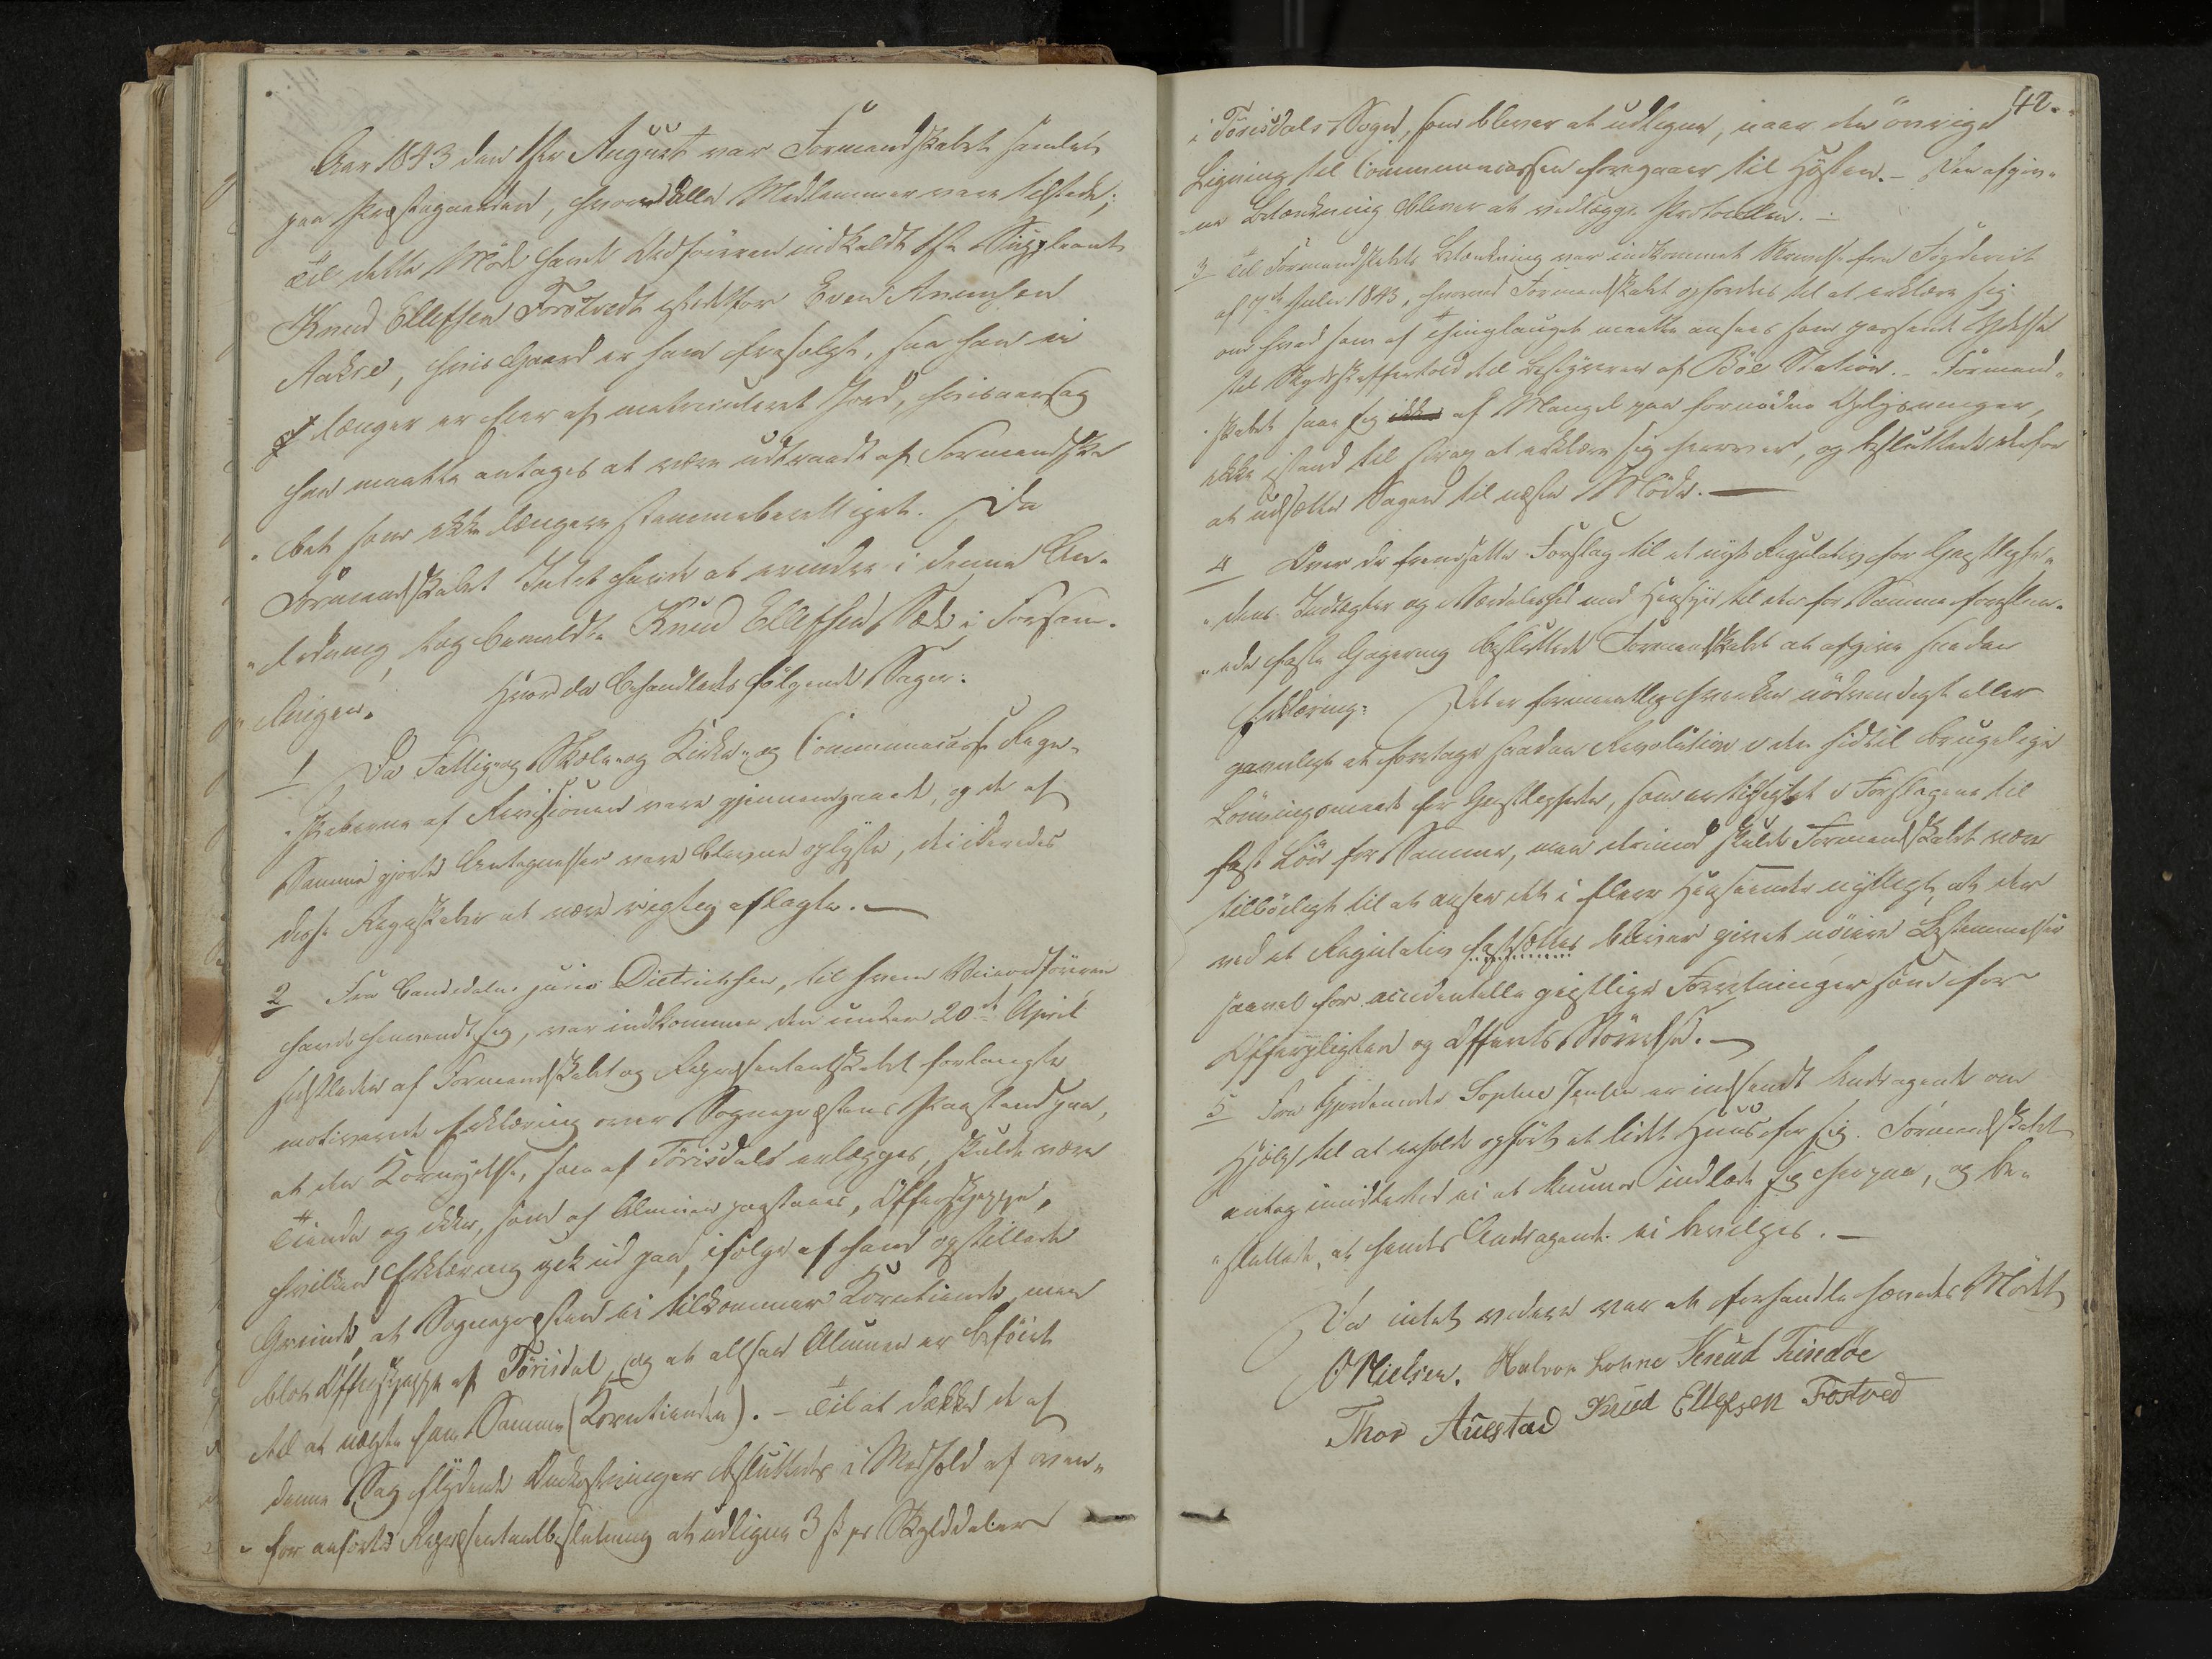 Aar 1843 den 1ste August var Formandskabet samlet
paa Præstegaarden, hvor alle Medlemmer vare tilstede;
Til dette Møde havde Ordføreren indkaldt 1ste Suppleant
Knud Ellefsen Forstvedt istedetfor Even Anundsen
Aakre, hvis Gaard er ham frasolgt, saa han ei
længer er Eier af matriculeret Jord, hvisaarsag
han maatte antages at være udtraadt af Formandska-
bet som ikke længere stemmeberettiget. Da
Formandskabet Intet havde at erindre i denne An-
ledning, tog bemeldte Knud Ellefsen Sæde i Forsam-
lingen. Hvorda behandledes følgende Sager:
1 Da Fattig- og Skole- og Kirke- og Communecasse Regn-
skaberne af Revisionen vare gjennemgaaede, og de af
Samme gjorte Antegnelser vare blevne oplyste, decideredes
disse Regnskaber at være rigtig aflagte. —
2 Fra Candidatus juris Dietrichsen, til hvem Viceordføreren
havde henvendt sig, var indkommen den under 20de April
sidstleden af Formandskabet og Repræsentantskabet forlangte
motiverede Erklæring over Sognepræstens Paastand paa,
at den Kornydelse, som af Törisdals erlægges, skulde være
Tiende og ikke, som af Almuen paastaaes, Offerskjeppe,
hvilken Erklæring gik ud paa, ifølge af ham opstillede
Grunde, at Sognepræsten ei tilkommer Korntiende, men
blot Offerskjeppe af Törisdal, og at altsaa Almuen er beføiet
til at nægte ham Samme (Korntienden). — Til at dække de af
denne Sag flydende Omkostninger besluttedes i Medhold af oven-
for anførte Repræsentantbeslutning at udligne 3 ß pr Skylddaler
42.
i Törisdals Sogn, som bliver at udligne, naar den övrige
Ligning til Communecassen foregaaer til Høsten. — Den afgiv-
ne Betænkning bliver at vedlægge Protocollen. —
3 Til Formandskabets Betænkning var indkommet Skrivelse fra Fogderiet
af 7de Juli 1843, hvorved Formandskabet opfordres til at erklære sig
om hvad som af Thinglauget maatte ansees som passende Ydelse
til Skydsskafferhold til Bestyreren af Böe Station. — Formand-
skabet saae sig af Mangel paa fornødne Oplysninger,
ikke istand til strax at erklære sig herover, og besluttede derfor
at udsætte Sagen til næste Møde. —
4 Over de fremsatte Forslag til et nyt Regulativ for Geistlighe-
dens Indtægter og med Hensyn til den for Samme foreslaa-
ede faste Gagering besluttede Formandskabet at afgive saadan
Erklæring: Det er formeentlig hverken nödvendigt eller
gavnligt at foretage saadan Revolution i den hidtil brugelige
Lønningsmaade for Geistligheden, som er tilsigtet i Forslagene til
fast Løn for Samme, men derimod skulde Formandskabet være
tilböieligt til at ansee det i flere Henseender nyttigt, at der
ved et Regulativ fastsættes bliver givet nöiere Bestemmelser
saavel for accidentelle geistlige Forretninger som for
Offerpligten og Offerets Størrelse. —
5 Fra Gjordemoder Sophie Jensen er indsendt Andragende om
Hjælp til at erholde opført et lidet Huus for sig. Formandskabet
antog imidlertid ei at kunne indlade sig herpaa, og be-
sluttede, at hendes Andragende ei bevilges. —
Da intet videre var at forhandle hævedes Mødet
O Nielsen. Halvor Lohne Knud Tinedöe
Thor Aüestad Knud Ellefsen Fostved